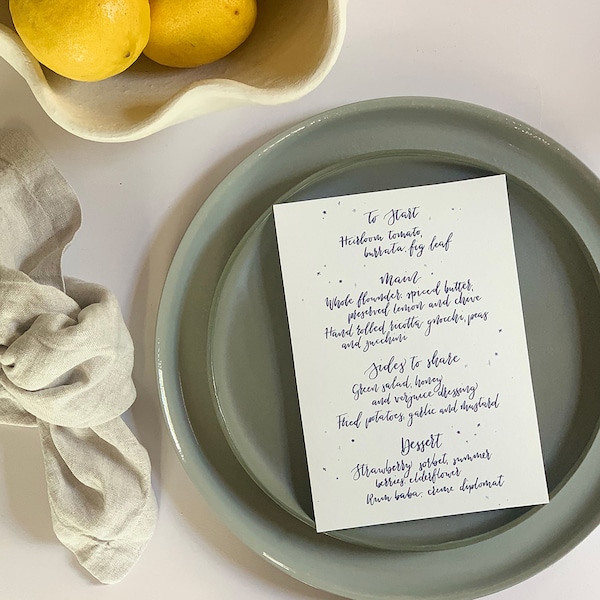 To Start
Heirloom tomato,
burrata, fig leaf
Main
Whole flounder, spiced butter,
preserved lemon and chive
Hand rolled ricotta gnocchi, peas
and zucchini
Sides to share
Green salad, honey
and verjuice dressing
Fried potatoes, garlic and mustard
Dessert
Strawberry sorbet, summer
berries, elderflower
Rum baba, creme diplomat